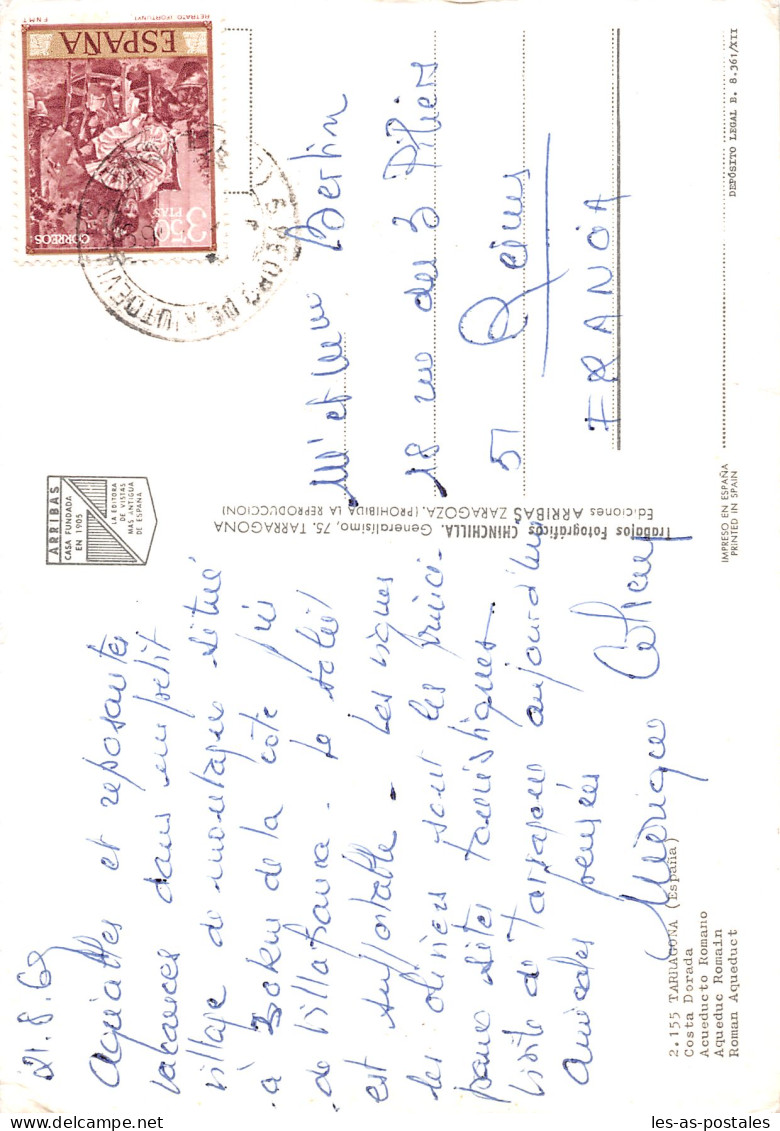 21.8.69
Agréables et reposantes
vacances dans un petit
village de montagne situé
à 30km de la côte près
de Villafranca. Le soleil
est supportable. Les vignes
les oliviers sont les princi-
paux sites touristiques.
Visite de Tarragone aujourd'hui
amicales pensées
2.155 TARRAGONA (España)
Costa Dorada
Acueducto Romano
Aqueduc Romain
Roman Aqueduct
ARRIBAS
CASA FUNDADA
EN 1905
LA EDITORA
DE VISTAS
MAS ANTIGUA
DE ESPAÑA
Trabajos Fotográficos CHINCHILLA. Generalísimo, 75. TARRAGONA
Ediciones ARRIBAS ZARAGOZA. (PROHIBIDA LA REPRODUCCION)
F.N.M.T.
RETRATO (FORTUNY)
ESPAÑA
3,50
PTAS
CORREOS
M. et Mme Bertin
18 rue des 3 Piliers
51 Reims
FRANCIA
IMPRESO EN ESPAÑA
PRINTED IN SPAIN
DEPÓSITO LEGAL B. 8.361/XII
les-as-postales